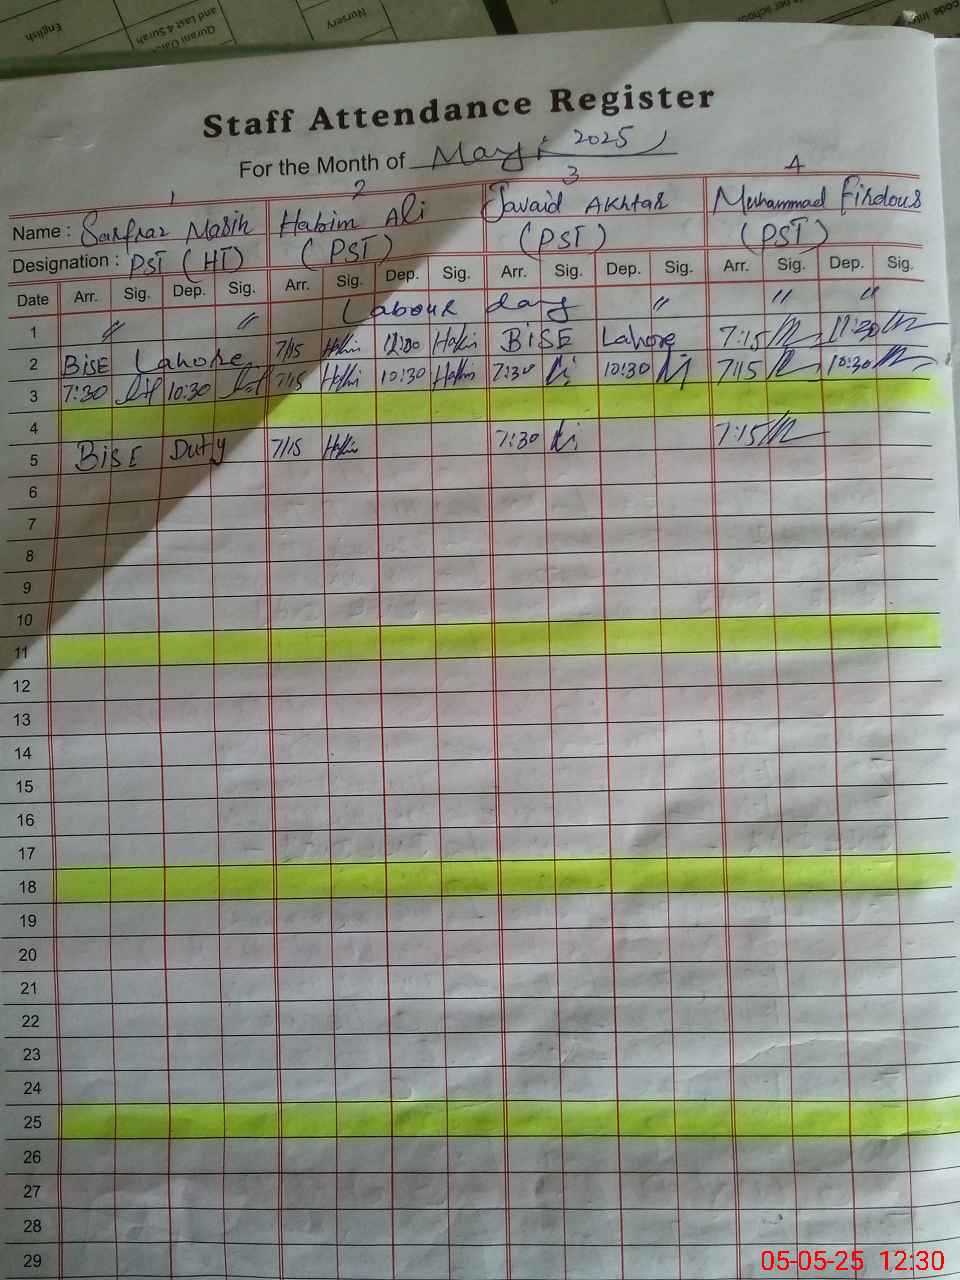 English
and Last 4 Surah
Qurani
Nursery
per school
code
Staff Attendance Register
For the Month of May: 2025
1 2 3 4
Name : Sarfraz Masih Hakim Ali Javaid Akhtar Muhammad Firdous
Designation : PST (HT) (PST) (PST) (PST)
Date Arr. Sig. Dep. Sig. Arr. Sig. Dep. Sig. Arr. Sig. Dep. Sig. Arr. Sig. Dep. Sig.
1 〃 〃 Labour day 〃 〃 〃
2 BISE Lahore 7/15 Hakim 12:00 Hakim BISE Lahore 7:15 11:30
3 7:30 10:30 7/15 Hakim 10:30 Hakim 7:30 10:30 7/15 10:30
4
5 BISE Duty 7/15 Hakim 7:30 7:15
6
7
8
9
10
11
12
13
14
15
16
17
18
19
20
21
22
23
24
25
26
27
28
29
05-05-25 12:30